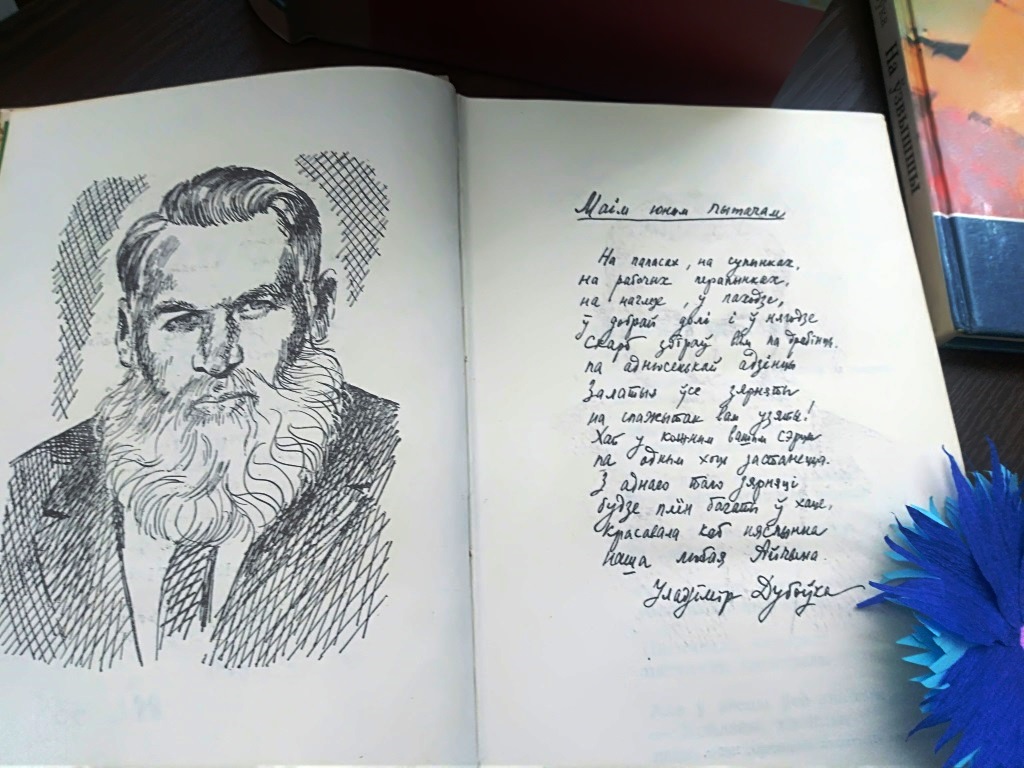 Маім юным чытачам
На папасах, на супынках,
на рабочых перапынках,
на начлезе, у паходзе,
ў добрай долі і ў нягодзе
Скарб збіраў вам па драбніцы,
па аднюсенькай адзінцы
Залатыя ўсе зярняты
на спажытак вам узяты!
Каб у кожным вашым сэрцы
па адным хоць засталося.
З аднаго таго зярняці
будзе плён багаты ў хаце,
красавала каб няспынна
наша любая Айчына.
Уладзімір Дубоўка
На ўзвышшы